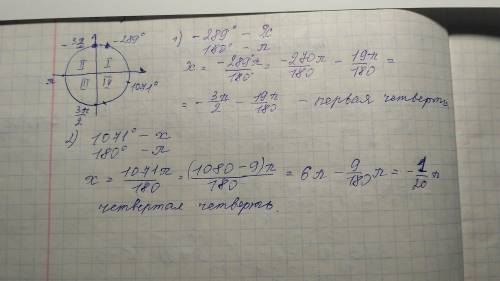 -3π/2 -289°
II I
π III IV
1071°
3π/2
1) -289° - x
180° - π
x = -289°π/180° = -270π/180 - 19π/180 =
= -3π/2 - 19π/180 - первая четверть
2) 1071° - x
180° - π
x = 1071π/180 = (1080-9)π/180 = 6π - 9/180 π = -1/20 π
четвертая четверть.